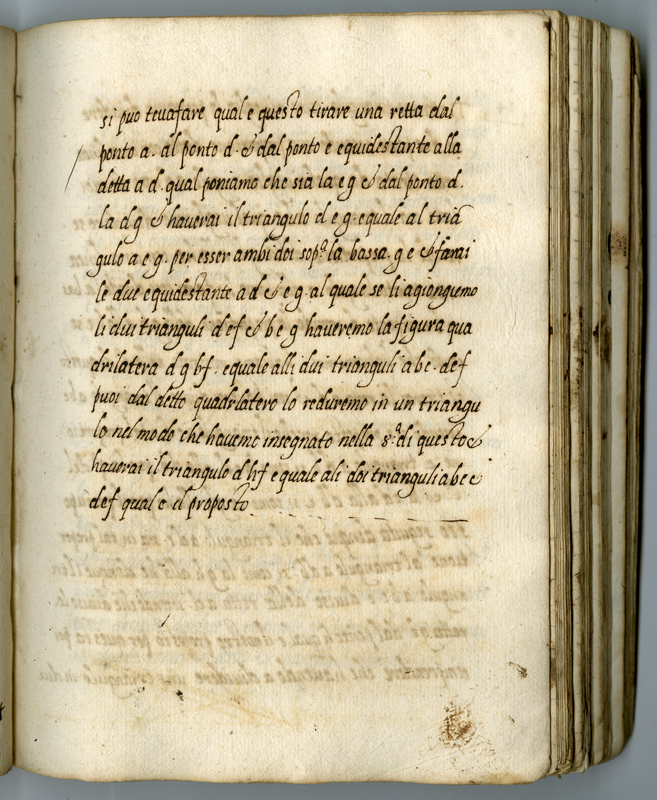 si puo tevafare qual e questo tirare una retta dal
ponto a. al ponto d. & dal ponto e equidestante alla
detta a d. qual poniamo che sia la e g & dal ponto d.
la d g & haverai il triangulo d e g. equale al triā
gulo a e g. per esser ambi doi sop.ª la bassa. g e & farai
le due equidestante a d & e g. al quale se li agiongnemo
li dui trianguli d e f & b e g haveremo la figura qua
drilatera d g b f. equale alli dui trianguli a b e. d e f
puoi dal detto quadrlatero lo reduremo in un triangu
lo nel modo che havemo insegnato nella 8.ª di questo &
haverai il triangulo d h f equale ali doi trianguli a b e &
d e f qual e il proposto